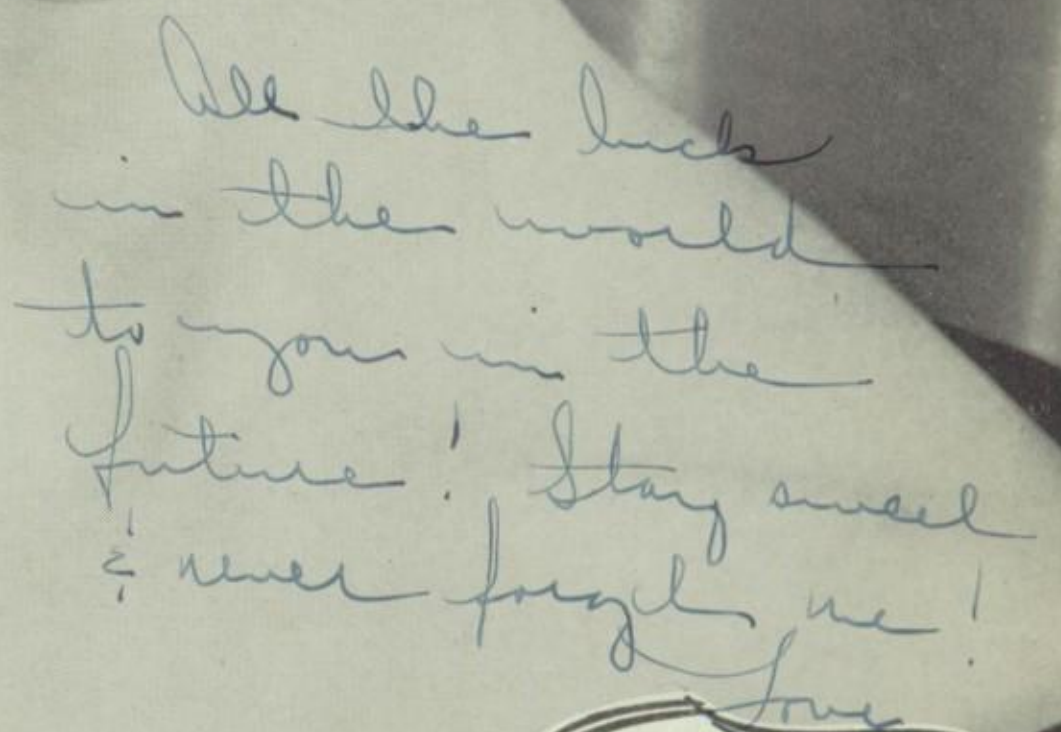 All the luck
in the world
to you in the
future! Stay sweet
& never forget me!
Love